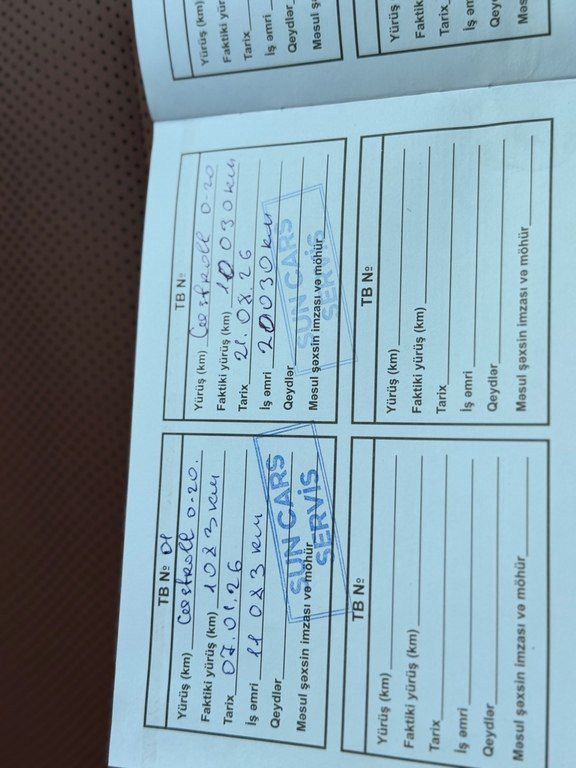 TB № 01
Yürüş (km) Castroll 0-20.
Faktiki yürüş (km) 1083 км
Tarix 07.01.26
İş əmri 11083 км
Qeydlər
Məsul şəxsin imzası və möhür
SUN CARS
SERVİS
TB №
Yürüş (km) Castroll 0-20
Faktiki yürüş (km) 10030 км
Tarix
İş əmri 20030 км
Qeydlər
Məsul şəxsin imzası və möhür
SUN CARS
SERVİS
TB №
Yürüş (km)
Faktiki yürüş (km)
Tarix
İş əmri
Qeydlər
Məsul şəxsin imzası və möhür
TB №
Yürüş (km)
Faktiki yürüş (km)
Tarix
İş əmri
Qeydlər
Məsul şəxsin imzası və möhür
Yürüş (km)
Faktiki yür
Tarix
İş əmri
Qeydlər
Məsul ş
Yürüş
Fakti
Tarix
İş əm
Qey
Məs